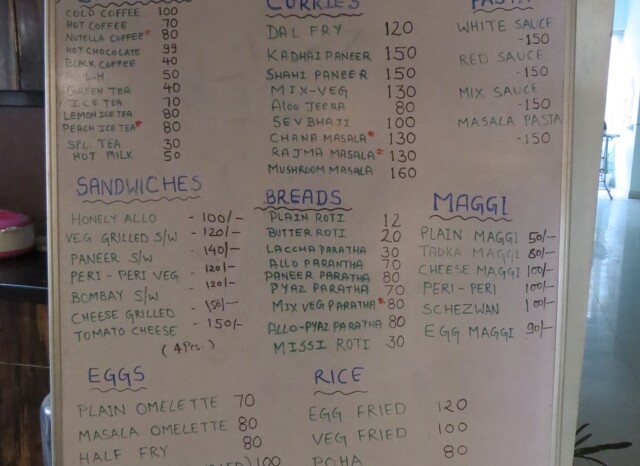 COLD COFFEE 100
HOT COFFEE 70
NUTELLA COFFEE 80
HOT CHOCOLATE 99
BLACK COFFEE 40
50
GREEN TEA 40
ICE TEA 70
LEMON ICE TEA 80
PEACH ICE TEA 80
SPL. TEA 30
HOT MILK 50
CURRIES
DAL FRY 120
KADHAI PANEER 150
SHAHI PANEER 150
MIX-VEG 130
ALOO JEERA 80
SEVBHAJI 100
CHANA MASALA 130
RAJMA MASALA 130
MUSHROOM MASALA 160
PASTA
WHITE SAUCE
-150
RED SAUCE
-150
MIX SAUCE
-150
MASALA PASTA
-150
SANDWICHES
HONELY ALLO - 100/-
VEG GRILLED S/W - 120/-
PANEER S/W - 140/-
PERI-PERI VEG - 120/-
BOMBAY S/W - 120/-
CHEESE GRILLED - 150/-
TOMATO CHEESE - 150/-
(4 Pcs.)
BREADS
PLAIN ROTI 12
BUTTER ROTI 20
LACCHA PARATHA 30
ALLO PARANTHA 70
PANEER PARATHA 80
PYAZ PARATHA 70
MIX VEG PARATHA 80
ALLO-PYAZ PARATHA 80
MISSI ROTI 30
MAGGI
PLAIN MAGGI 50/-
TADKA MAGGI 80/-
CHEESE MAGGI 100/-
PERI-PERI 100/-
SCHEZWAN 100/-
EGG MAGGI 90/-
EGGS
PLAIN OMELETTE 70
MASALA OMELETTE 80
HALF FRY 80
100
RICE
EGG FRIED 120
VEG FRIED 100
POHA 80